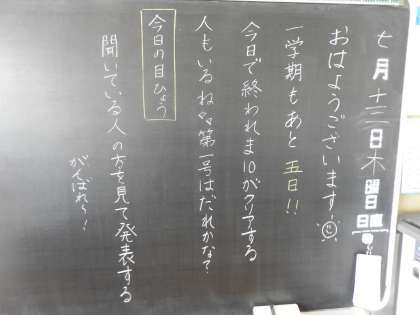 七月十三日木曜日
おはようございます！
一学期もあと五日!!
今日で終われま10がクリアする
人もいるね。第一号はだれかな？
今日の目ひょう
聞いている人の方を見て発表する
がんばれ〜！